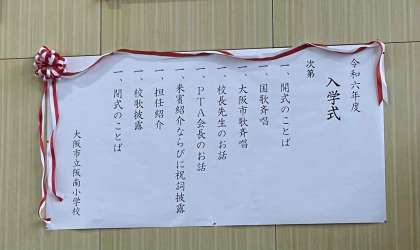 令和六年度
入学式
次第
一、開式のことば
一、国歌斉唱
一、大阪市歌斉唱
一、校長先生のお話
一、PTA会長のお話
一、来賓紹介ならびに祝詞披露
一、担任紹介
一、校歌披露
一、閉式のことば
大阪市立阪南小学校